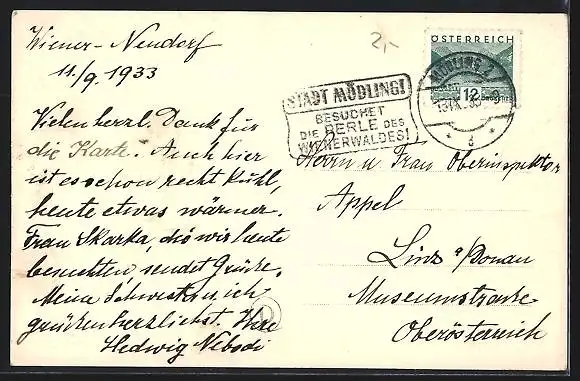 Wiener-Neudorf
11./9. 1933
2,-
Vielen herzl. Dank für
die Karte. Auch hier
ist es schon recht kühl,
heute etwas wärmer.
Frau Skarka, die wir heute
besuchten sendet Grüße.
Meine Schwester u. ich
grüßen herzlichst. Ihre
Hedwig Nebodi
STADT MÖDLING!
BESUCHET
DIE PERLE DES
WIENERWALDES!
ÖSTERREICH
12
MÖDLING
Herrn u. Frau Oberinspektor
Appel
Linz a/Donau
Museumstraße
Oberösterreich